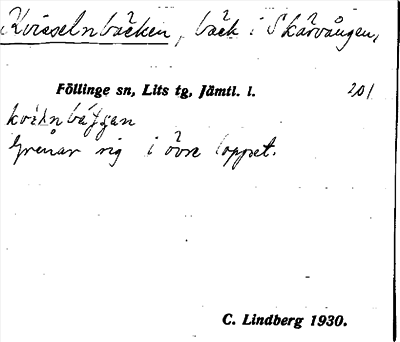 Kvisselnbäcken, bäck i Skärvången,
Föllinge sn, Lits tg, Jämtl. l. 201
Grenar sig i övre loppet.
C. Lindberg 1930.